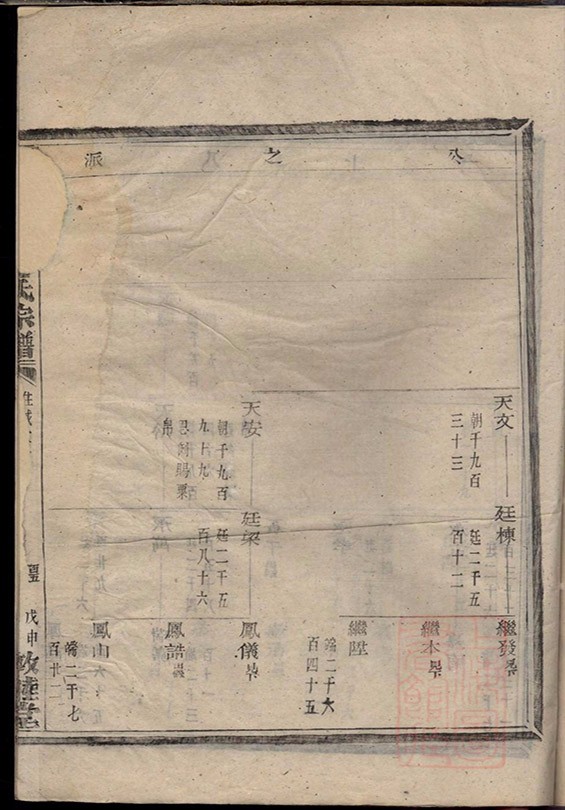 之
派
天文
朝千九百
三十三
廷棟
廷二千五
百十二
繼發
繼本
繼陞
端二千六
百四十五
天安
朝千九百
九十九
恩
賜粟
帛
廷梁
廷二千五
百八十六
鳳儀
鳳誥
鳳山
端二千七
百廿二
氏宗譜
戊申
敦睦堂